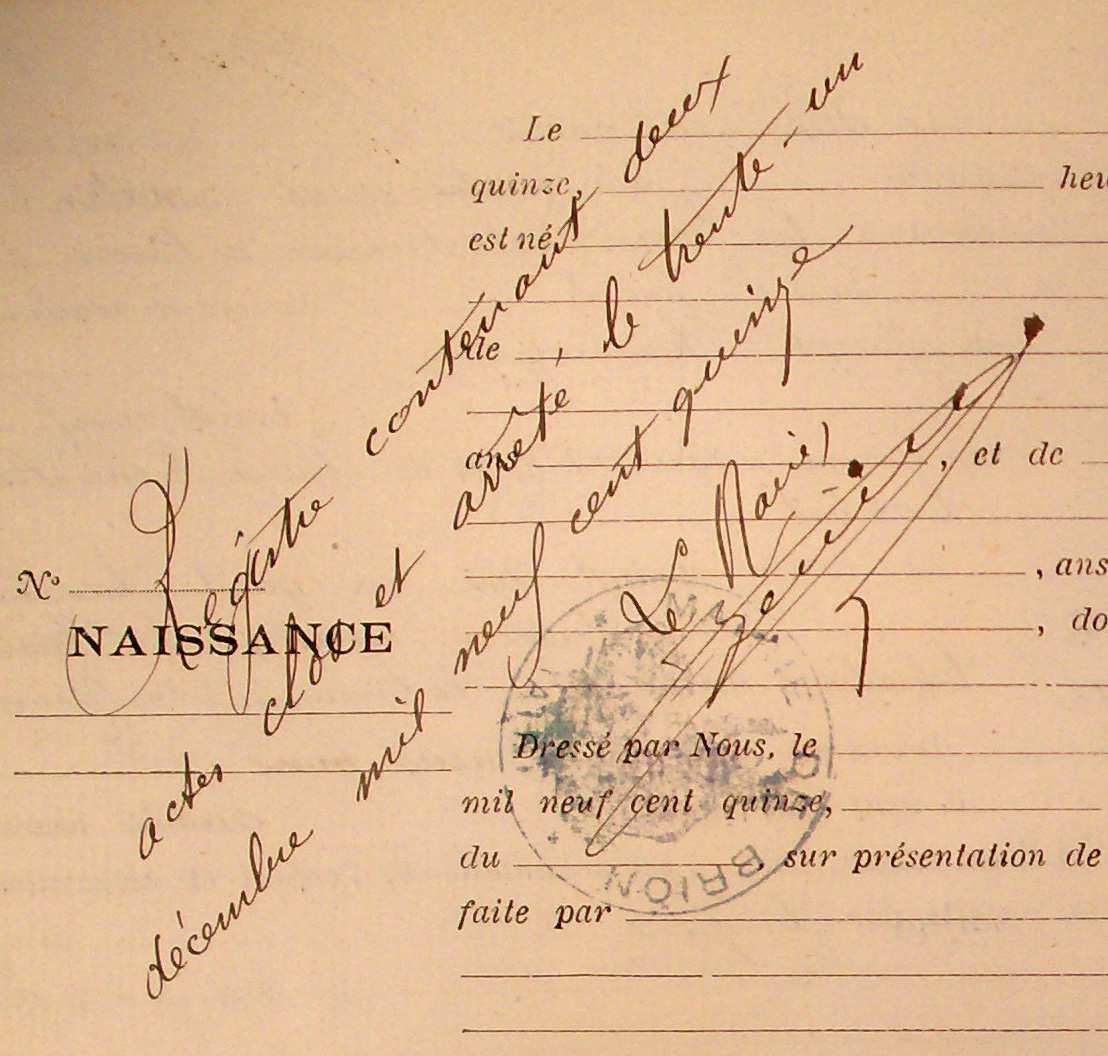 Le
quinze, heu
est né
de
an , et de
, ans
, do
Nº
NAISSANCE
Dressé par Nous, le
mil neuf cent quinze,
du , sur présentation de
faite par
Registre contenant deux
actes clos et arrêté, le trente-un
décembre mil neuf cent quinze
Le Maire,
MAIRIE DE BRION